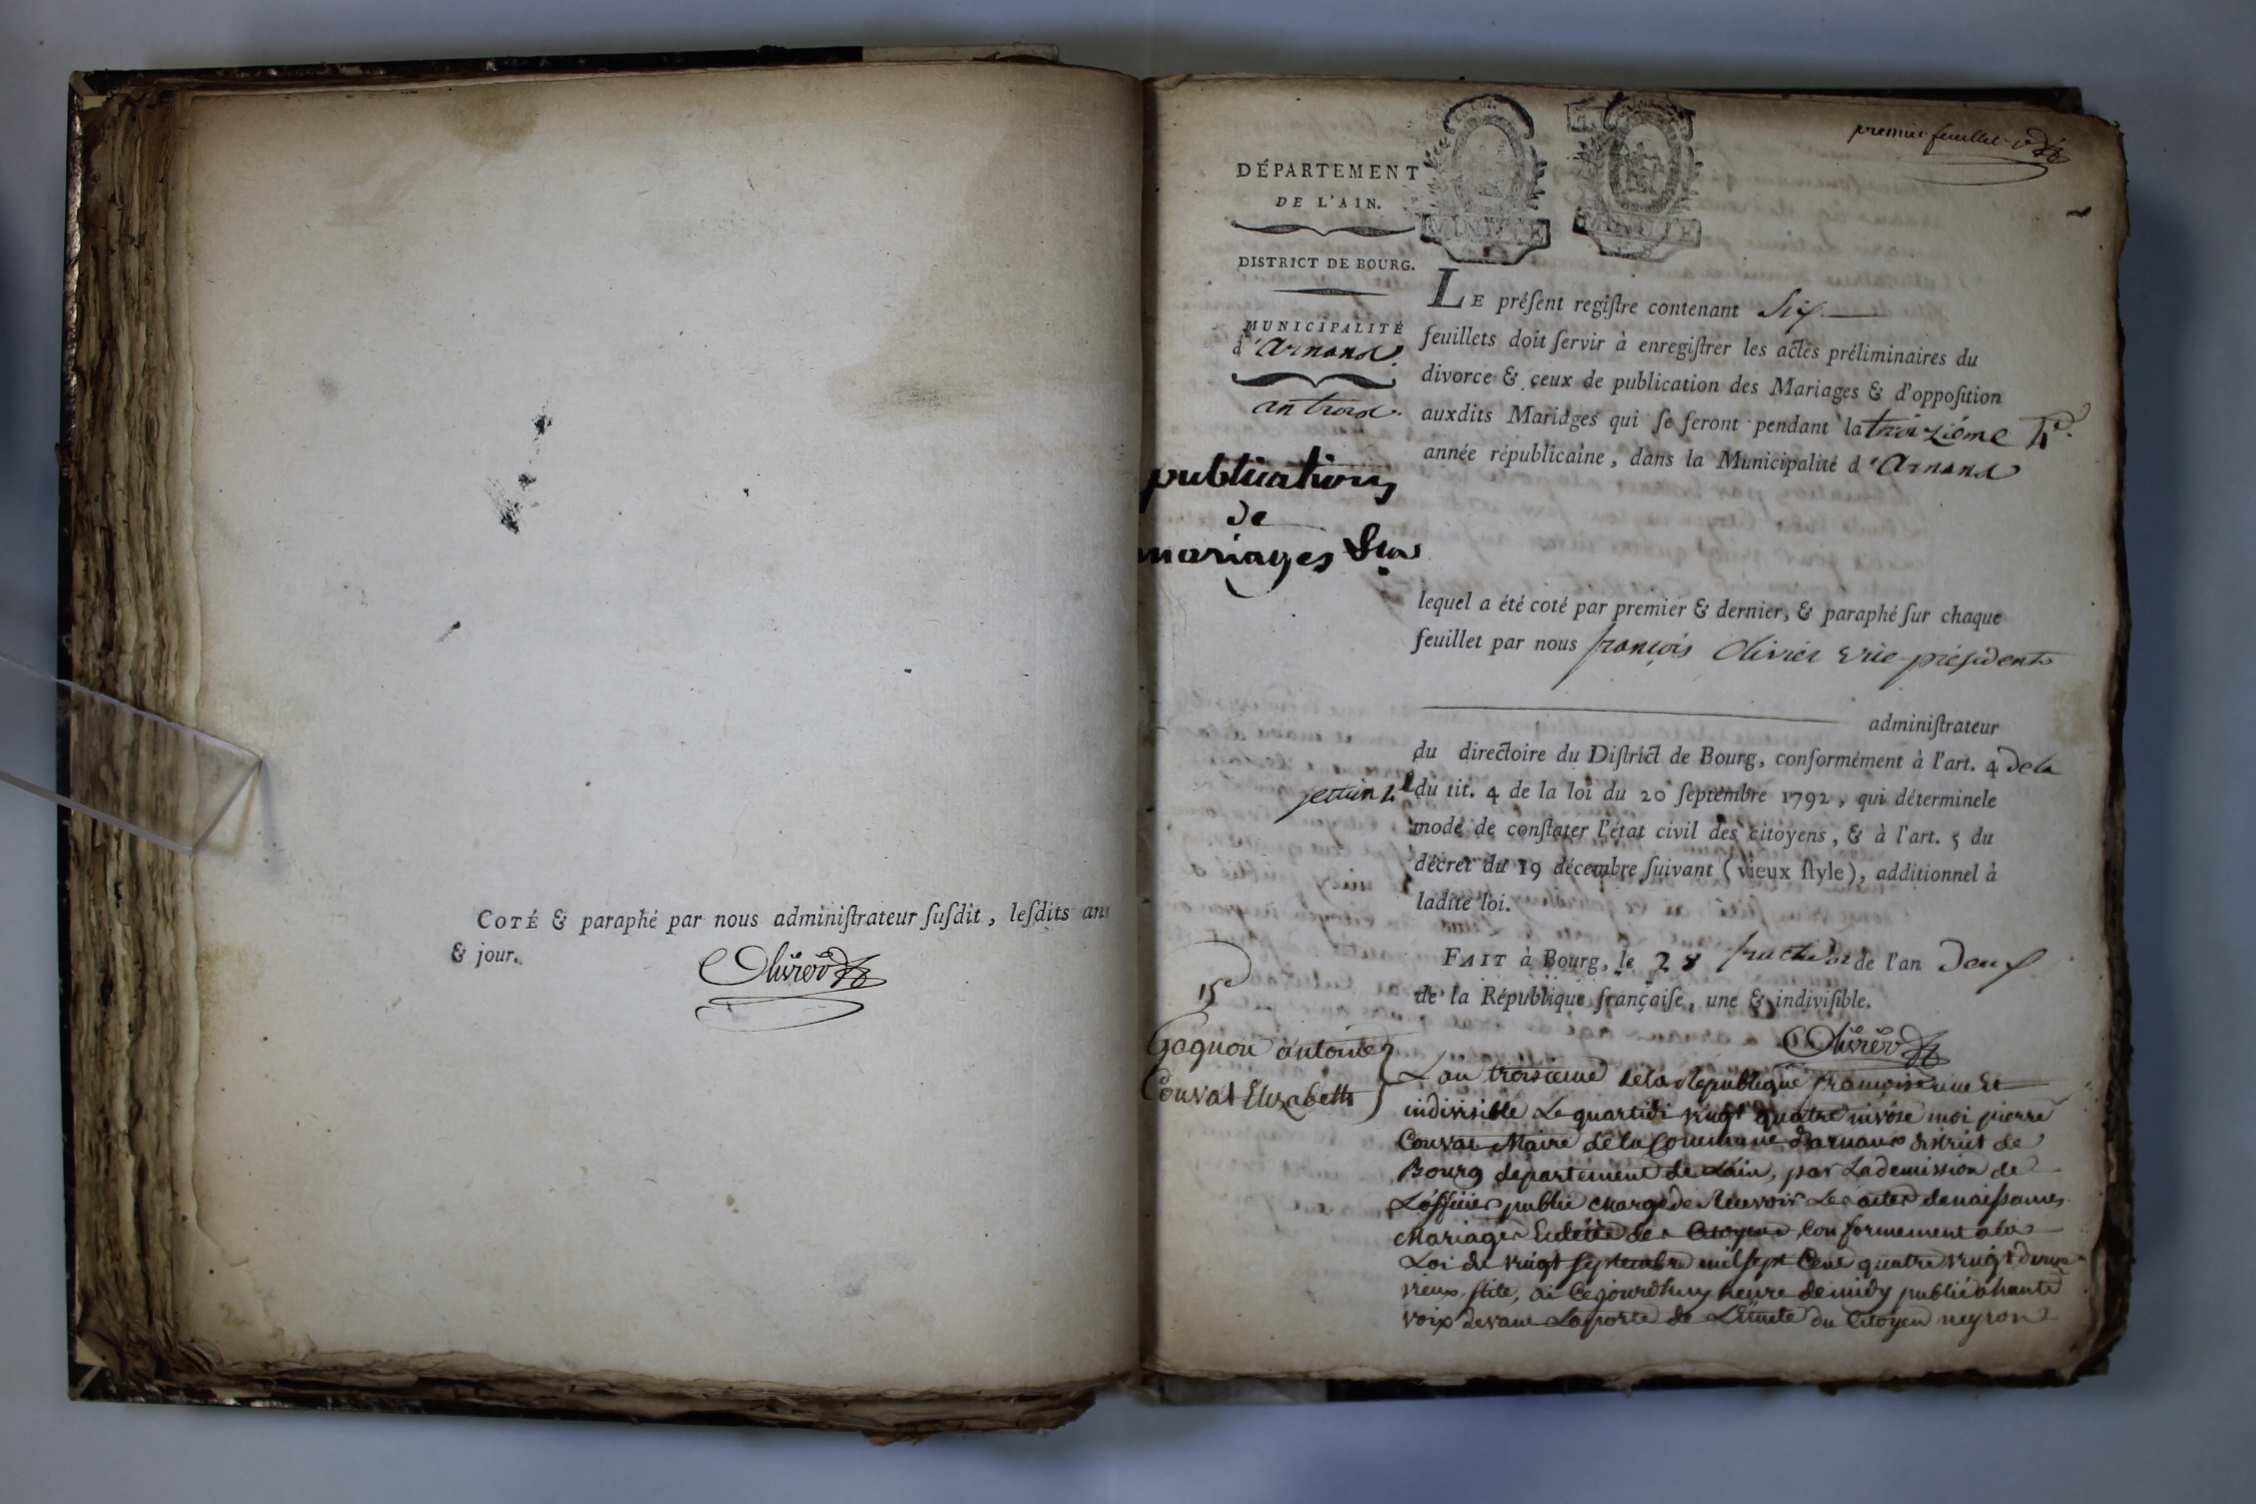 COTÉ & paraphé par nous administrateur susdit, lesdits ans
& jour.
Olivier
premier feuillet
DÉPARTEMENT
DE L'AIN.
DISTRICT DE BOURG.
MUNICIPALITÉ
d'Arnans
an trois.
publications
de
mariages
MINUTE
LE présent registre contenant Six
feuillets doit servir à enregistrer les actes préliminaires du
divorce & ceux de publication des Mariages & d'opposition
auxdits Mariages qui se feront pendant la troizième
année républicaine, dans la Municipalité d'Arnans
lequel a été coté par premier & dernier, & paraphé sur chaque
feuillet par nous françois Olivier vice-président
administrateur
du directoire du District de Bourg, conformément à l'art. 4 de la
du tit. 4 de la loi du 20 septembre 1792, qui détermine le
mode de constater l'état civil des citoyens, & à l'art. 5 du
décret du 19 décembre suivant (vieux style), additionnel à
ladite loi.
FAIT à Bourg, le 28 fructidor de l'an deux
de la République française, une & indivisible.
Olivier
Gagnon antoine
Couvat Elizabeth
L'an troisieme de la Republique francoise une Et
indivisible Le quartidi vingt quatre nivôse moi pierre
Couvat Maire de la Commune d'arnans district de
Bourg departement de Lain, par La demission de
L'officier public chargé de Recevoir Les actes de naissances
Mariages Et décès des Citoyens, Conformement a la
Loi du vingt septembre mil sept Cent quatre vingt douze
vieux stile, ai Cejourdhuy heure de midy publié à haute
voix devant La porte de du Citoyen neyron